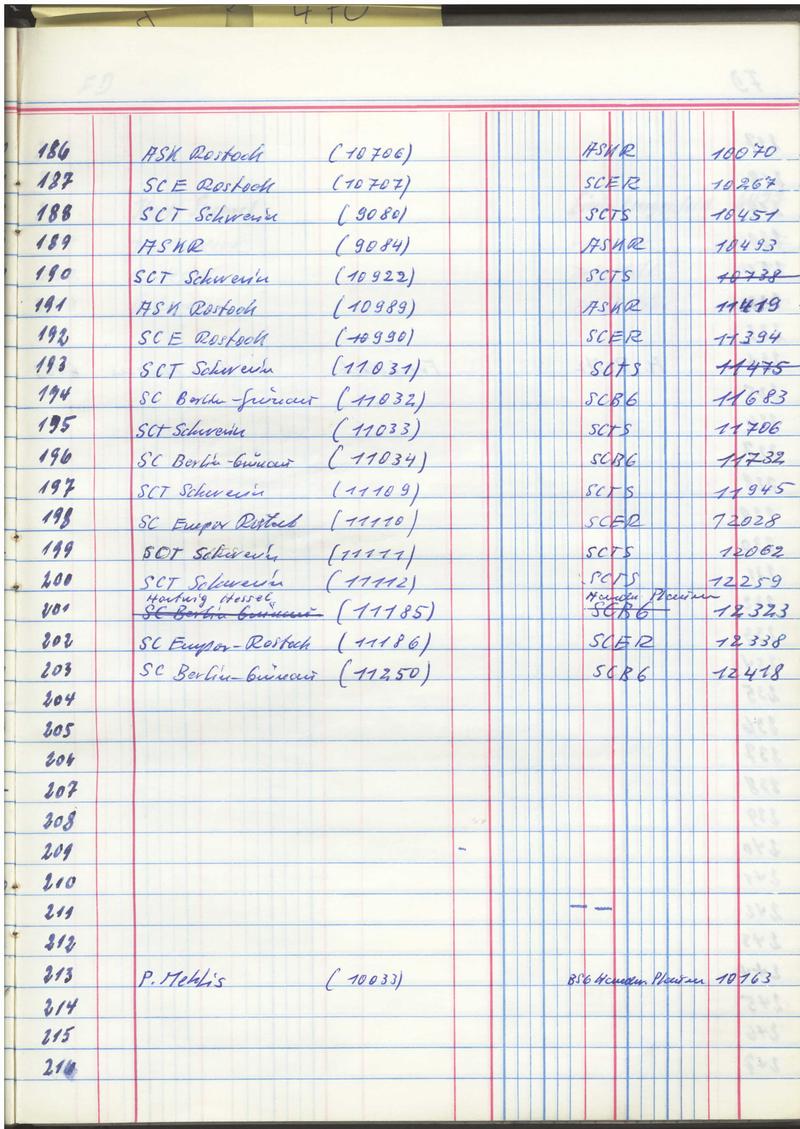 470
186 ASK Rostock (10706) ASKR 10070
187 SCE Rostock (10707) SCER 10267
188 SCT Schwerin (9080) SCTS 10451
189 ASKR (9084) ASKR 10493
190 SCT Schwerin (10922) SCTS 10738
191 ASK Rostock (10989) ASKR 11419
192 SCE Rostock (10990) SCER 11394
193 SCT Schwerin (11031) SCTS 11475
194 SC Berlin-Grünau (11032) SCBG 11683
195 SCT Schwerin (11033) SCTS 11706
196 SC Berlin-Grünau (11034) SCBG 11732
197 SCT Schwerin (11109) SCTS 11945
198 SC Empor Rostock (11110) SCER 12028
199 SCT Schwerin (11111) SCTS 12062
200 SCT Schwerin (11112) SCTS 12259
Hartwig
201 SC Berlin Grünau (11185) SCBG 12323
202 SC Empor-Rostock (11186) SCER 12338
203 SC Berlin-Grünau (11250) SCBG 12418
204
205
206
207
208
209
210
211
212
213 P. Mehlis (10033) BSG Plauen 10163
214
215
216